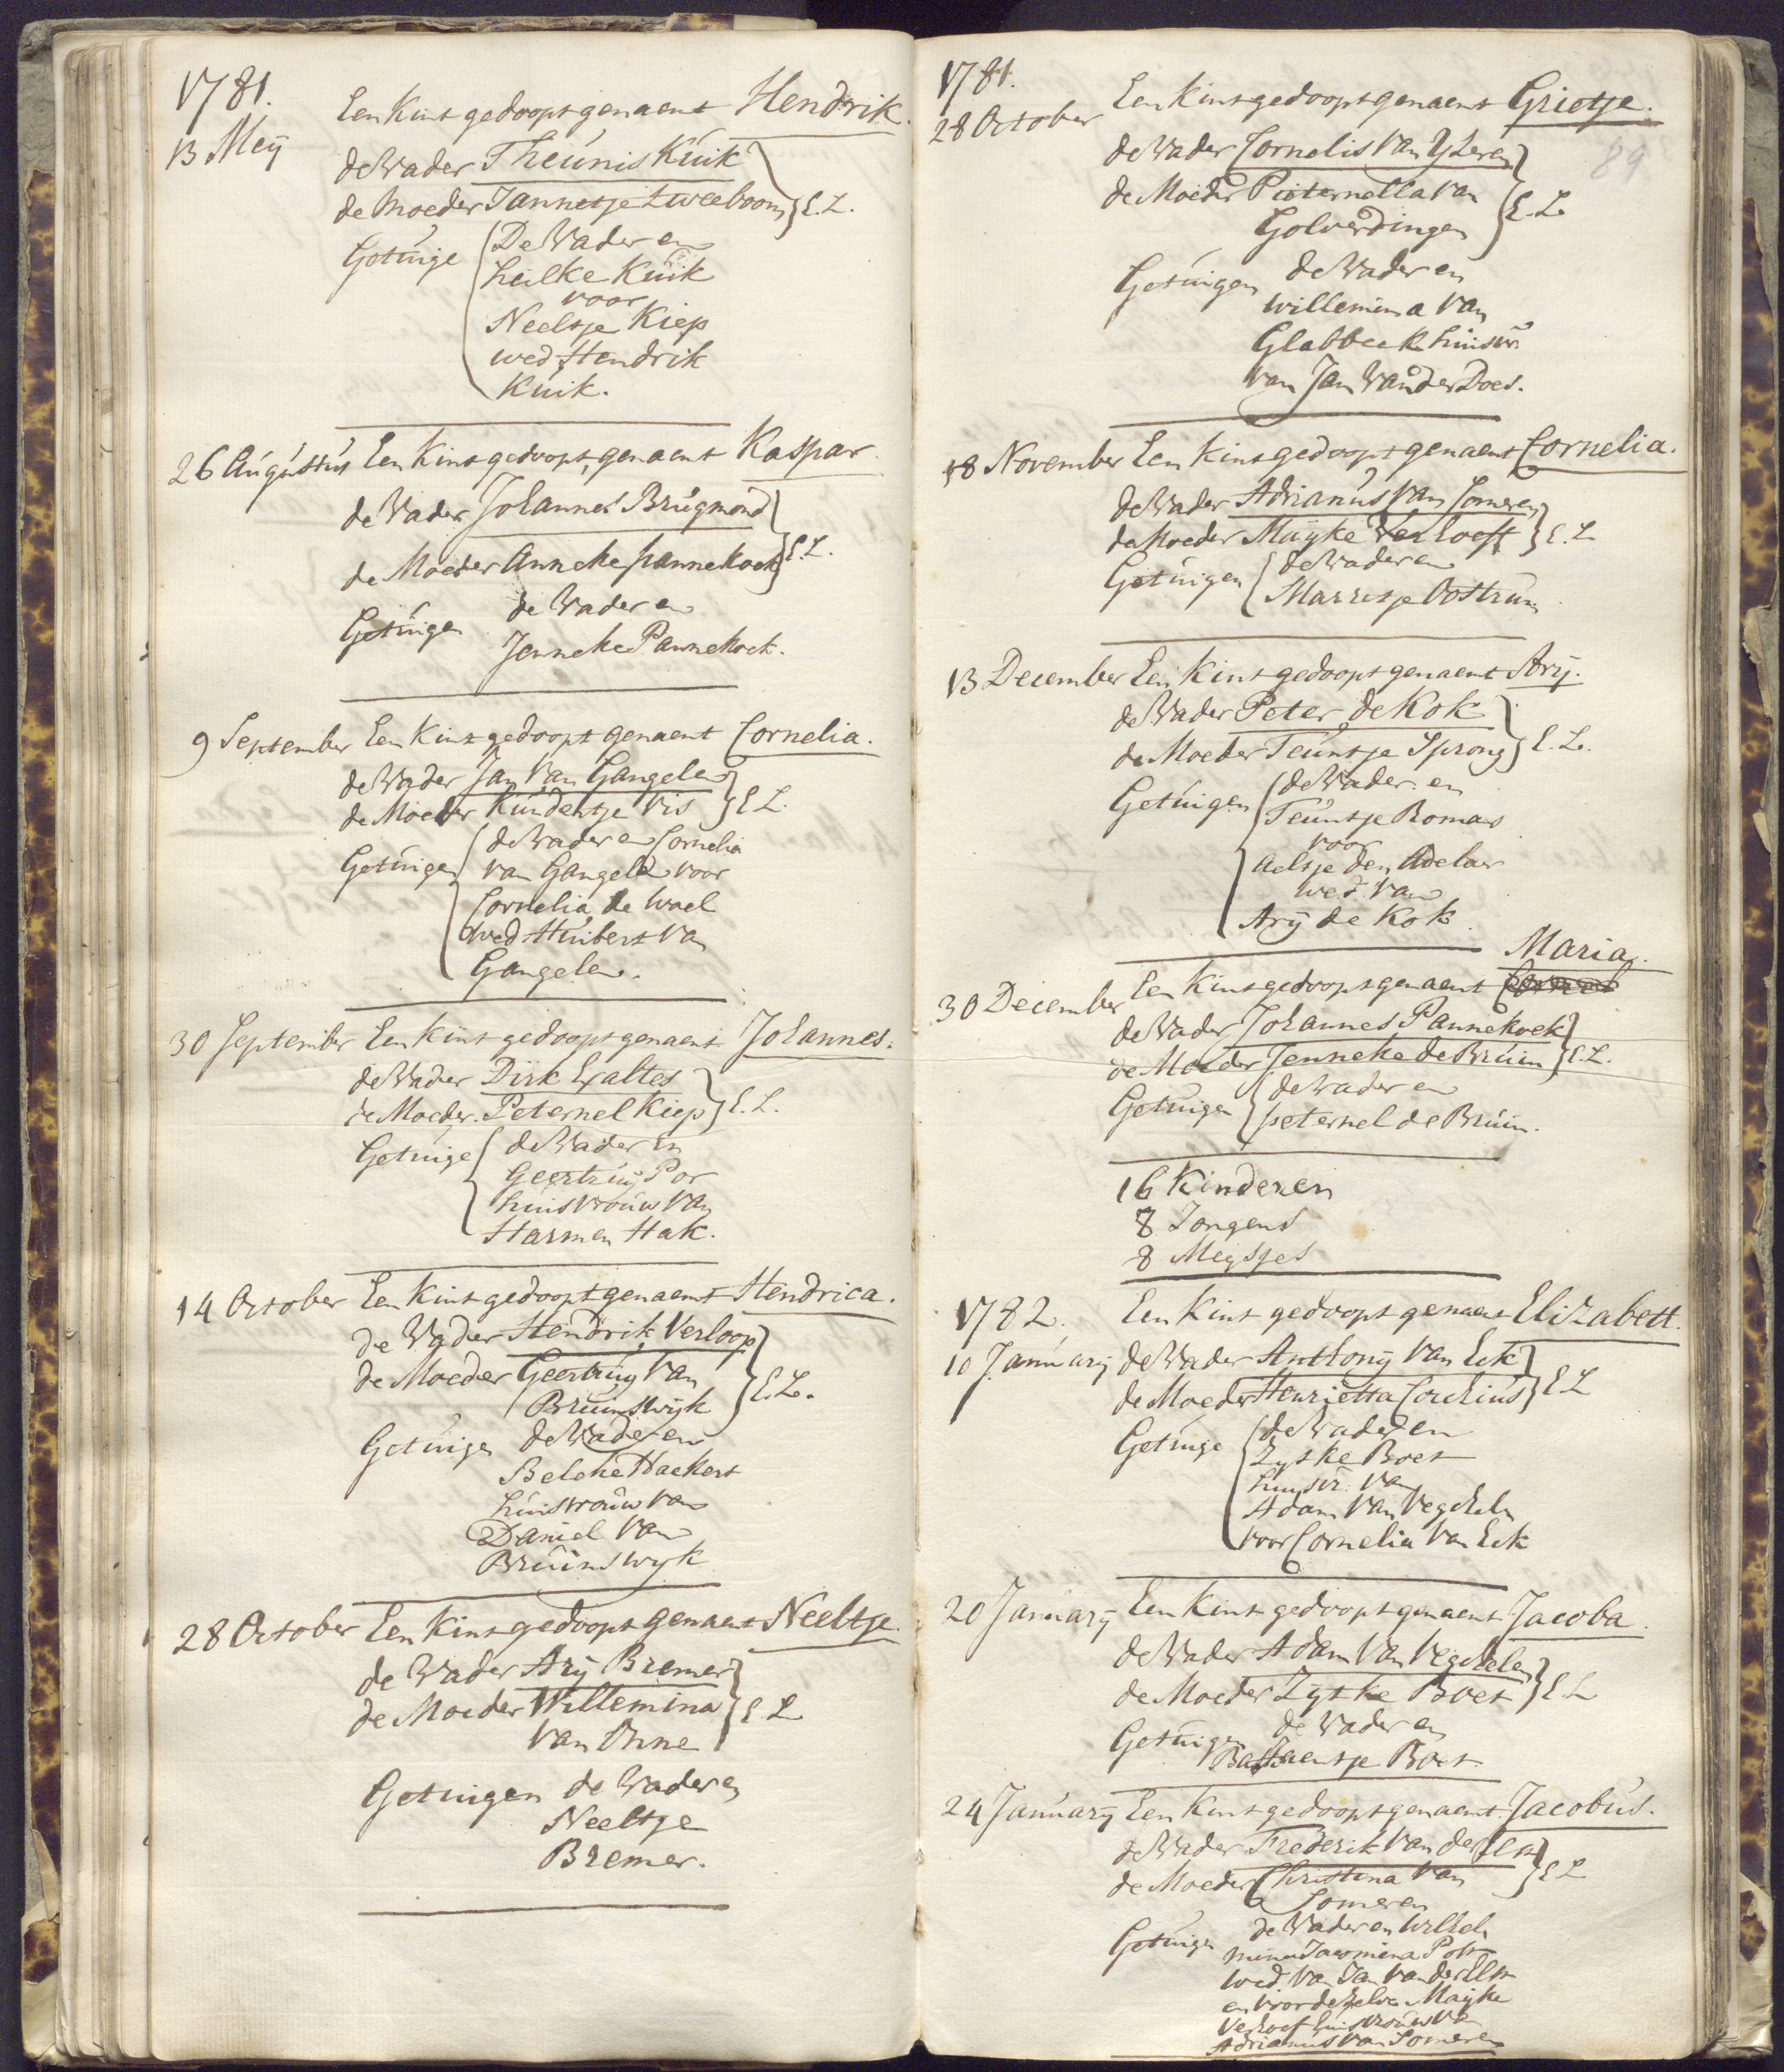 1781.
13 Meij
Een Kint gedoopt genaemt Hendrik.
de Vader Theunis Kuik
de Moeder Jannetje Tweeboom E.L.
Getuige De Vader en
heilke Kuik
voor
Neeltje Kiep
wed Hendrik
Kuik.
26 Augustus Een Kint gedoopt, genaemt Kaspar.
de Vader Johannes Brugmond
de Moeder Anneke pannekoek E.L.
Getuigen de Vader en
Jenneke Pannekoek.
9 September Een Kint gedoopt genaemt Cornelia.
de Vader Jan Van Gangelen
de Moeder Kundertje Vis E L.
Getuigen de Vader en Cornelia
van Gangelen voor
Cornelia de Wael
Wed Huibert Van
Gangelen.
30 September Een Kint gedoopt genaemt Johannes.
de Vader Dirk Exaltes
de Moeder Peternel Kiep E.L.
Getuige de Vader En
Geertruij Por
huisvrouw Van
Harmen Hak.
14 October Een Kint gedoopt genaemt Hendrica.
de Vader Hendrik Verloop
de Moeder Geertruij Van
Bruinswijk E.L.
Getuigen de Vader en
Beleke Hackert
huisvrouw Van
Daniel Van
Bruinswyk
28 October Een Kint gedoopt genaemt Neeltje.
de Vader Arij Bremer
de Moeder Willemina E L
Van Ohne
Getuigen de Vader en
Neeltje
Bremer.
1781.
28 October
Een Kint gedoopt genaemt Grietje.
89
de Vader Cornelis Van Yzeren
de Moeder Pieternella Van
Golverdingen E.L.
Getuigen de Vader en
Willemina Van
Glabbeek huisvr.
van Jan Van der Does.
18 November Een Kint gedoopt genaemt Cornelia.
de Vader Adrianus Van Someren
de Moeder Maijke Verhoeff E.L
Getuigen de Vader en
Marretje Oostrum
13 December Een Kint gedoopt genaemt Arij.
de Vader Peter de Kok
de Moeder Teuntje Sprong E.L.
Getuigen de Vader en
Teuntje Romas
voor
Aeltje den Adelaer
wed. Van
Arij de Kok.
Maria.
30 December Een Kint gedoopt genaemt
de Vader Johannes Pannekoek
de Moeder Jenneke de Bruin E.L.
Getuigen de Vader en
peternel de Bruin.
16 Kinderen
8 Jongens
8 Meijsjes
1782. Een Kint gedoopt genaemt Elizabett.
10 Januarij de Vader Anthonij Van Eck
de Moeder Henrietta Couzius E L
Getuige de Vader en
Zyske Boet
huysvr. Van
Adam Van Veghelen
voor Cornelia Van Eck
20 Januarij Een Kint gedoopt genaemt Jacoba.
de Vader Adam Van Veghelen
de Moeder Zyske Boet E L
Getuigen de Vader en
Bastiaentje Boet.
24 Januarij Een Kint gedoopt genaemt Jacobus.
de Vader Frederik Van der Elst
de Moeder Christina Van E L
Someren
Getuigen de Vader en Wilhel
mina Jacomina Pott
wed. Van Jan Van der Elst
en voor dezelve Maijke
Verhoef huisvrouw Van
Adrianus Van Someren